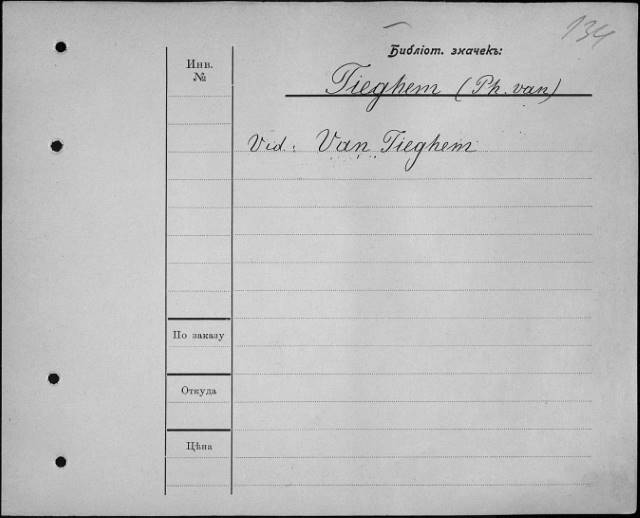 134
Библіот. значекъ:
Инв.
№
Tieghem (Ph. van)
Vid. Van Tieghem
По заказу
Откуда
Цѣна